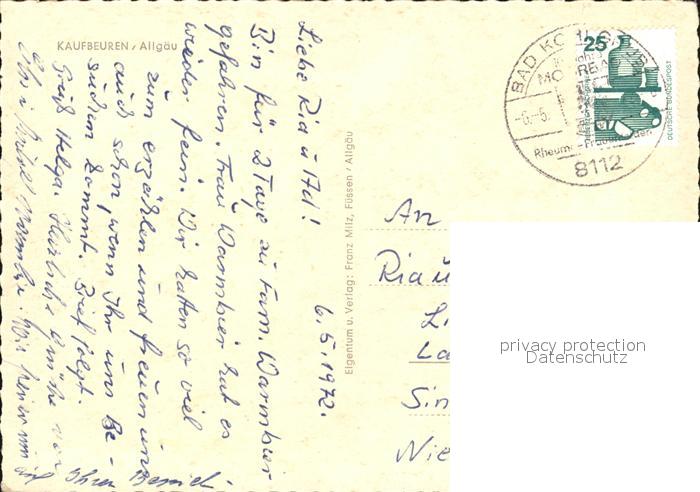 KAUFBEUREN / Allgäu
6.5.1972.
Liebe Ria u Adl!
Bin für 2 Tage zu Fam. Warmbier
gefahren. Frau Warmbier hat es
wieder fein. Wir haten so viel
zum erzählen und freuen uns
auch schon, wenn Ihr uns be-
suchen kommt. Brief folgt.
Gruß Helga. Herzliche Grüße von
Warmbier. Wir freuen uns
auf Ihren Besuch.
Eigentum u. Verlag: Franz Milz, Füssen / Allgäu
BAD KOHLGRUB
-6.-5.
MOORBA
Rheuma- Frauenleiden
8112
25
DEUTSCHE BUNDESPOST
An
Ria u
Li
La
Sin
Nie
privacy protection
Datenschutz